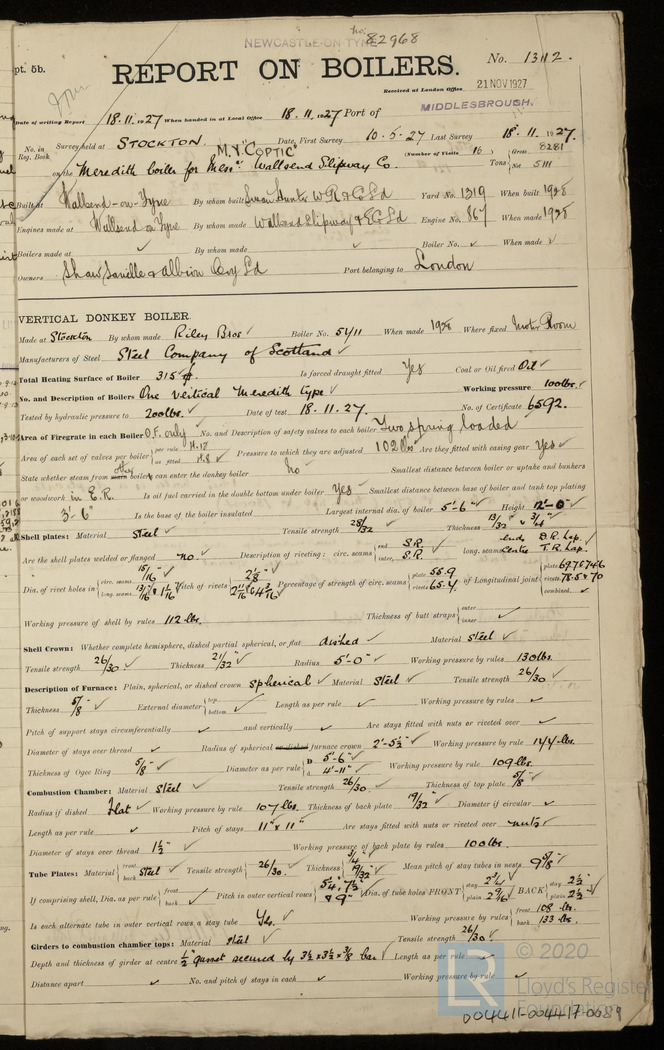 pt. 5b.
NEWCASTLE-ON-TYNE
No. 82968
REPORT ON BOILERS.
No. 13112.
Received at London Office 21 NOV 1927
MIDDLESBROUGH.
Date of writing Report 18.11.1927 When handed in at Local Office 18.11.1927 Port of
No. in Reg. Book Survey held at STOCKTON. Date, First Survey 10-5-27 Last Survey 18.11.1927.
on the Meredith boiler for Messrs Wallsend Slipway Co. M.V "COPTIC" (Number of Visits 16) Tons Gross 8281 Net 5111
Built at Wallsend-on-Tyne By whom built Swan Hunter W R & Co Ld Yard No. 1319 When built 1928
Engines made at Wallsend on Tyne By whom made Wallsend Slipway & E Co Ld Engine No. 867 When made 1928
Boilers made at ✓ By whom made ✓ Boiler No. ✓ When made ✓
Owners Shaw Savill & Albion Coy Ld Port belonging to London
VERTICAL DONKEY BOILER.
Made at Stockton By whom made Riley Bros ✓ Boiler No. 5411 When made 1928 Where fixed Motor Room
Manufacturers of Steel Steel Company of Scotland ✓
Total Heating Surface of Boiler 315 Is forced draught fitted Yes Coal or Oil fired Oil ✓
No. and Description of Boilers One vertical Meredith type ✓ Working pressure 100lbs. ✓
Tested by hydraulic pressure to 200lbs. ✓ Date of test 18.11.27. No. of Certificate 6592.
Area of Firegrate in each Boiler O.F. only No. and Description of safety valves to each boiler Two spring loaded
Area of each set of valves per boiler per rule as fitted Pressure to which they are adjusted 102 lbs ✓ Are they fitted with easing gear Yes ✓
State whether steam from other boilers can enter the donkey boiler No ✓ Smallest distance between boiler or uptake and bunkers
or woodwork in E.R. Is oil fuel carried in the double bottom under boiler Yes ✓ Smallest distance between base of boiler and tank top plating
3'-6" Is the base of the boiler insulated Largest internal dia. of boiler 5'-6" ✓ Height 12'-0" ✓
Shell plates: Material Steel ✓ Tensile strength 28/32 ✓ Thickness 13/32" & 3/4" ✓
Are the shell plates welded or flanged no. ✓ Description of riveting: circ. seams end S.R. inter. S.R ✓ long. seams ends D.R. Lap. centre T.R. Lap.
Dia. of rivet holes in circ. seams 15/16" long. seams 13/16" & 1 1/16" Pitch of rivets 2 1/8" Percentage of strength of circ. seams plate 55.9 rivets 65.4. of Longitudinal joint plate rivets combined ✓
Working pressure of shell by rules 112 lbs. Thickness of butt straps outer inner ✓
Shell Crown: Whether complete hemisphere, dished partial spherical, or flat dished ✓ Material Steel ✓
Tensile strength 26/30 ✓ Thickness 21/32" ✓ Radius 5'-0" ✓ Working pressure by rules 130lbs.
Description of Furnace: Plain, spherical, or dished crown Spherical ✓ Material Steel ✓ Tensile strength 26/30 ✓
Thickness 5/8" ✓ External diameter top bottom ✓ Length as per rule ✓ Working pressure by rules ✓
Pitch of support stays circumferentially ✓ and vertically ✓ Are stays fitted with nuts or riveted over ✓
Diameter of stays over thread ✓ Radius of spherical or dished furnace crown 2'-5 1/2" ✓ Working pressure by rule 144 lbs.
Thickness of Ogee Ring 5/8" ✓ Diameter as per rule D 5'-6" d 4'-11" ✓ Working pressure by rule 109 lbs.
Combustion Chamber: Material Steel ✓ Tensile strength 26/30. ✓ Thickness of top plate 5/8" ✓
Radius if dished Flat ✓ Working pressure by rule 107 lbs. Thickness of back plate 19/32" ✓ Diameter if circular ✓
Length as per rule ✓ Pitch of stays 11" x 11" ✓ Are stays fitted with nuts or riveted over nuts ✓
Diameter of stays over thread 1 1/2" ✓ Working pressure of back plate by rules 100 lbs.
Tube Plates: Material front back Steel ✓ Tensile strength 26/30. ✓ Thickness 3/4" 19/32" ✓ Mean pitch of stay tubes in nests 9 5/8" ✓
If comprising shell, Dia. as per rule front back ✓ Pitch in outer vertical rows 5 1/4", 7 1/2" & 9" Dia. of tube holes FRONT stay plain BACK stay 2 1/2" plain 2 1/2" ✓
Is each alternate tube in outer vertical rows a stay tube Yes. ✓ Working pressure by rules front 108 lbs. back 133 lbs.
Girders to combustion chamber tops: Material steel ✓ Tensile strength 26/30 ✓
Depth and thickness of girder at centre 1/2" gusset secured by 3 1/2 x 3 1/2 x 3/8 bar ✓ Length as per rule ✓
Distance apart ✓ No. and pitch of stays in each ✓ Working pressure by rule ✓
© 2020
LR
Lloyd's Register
Foundation
004411-004417-0089